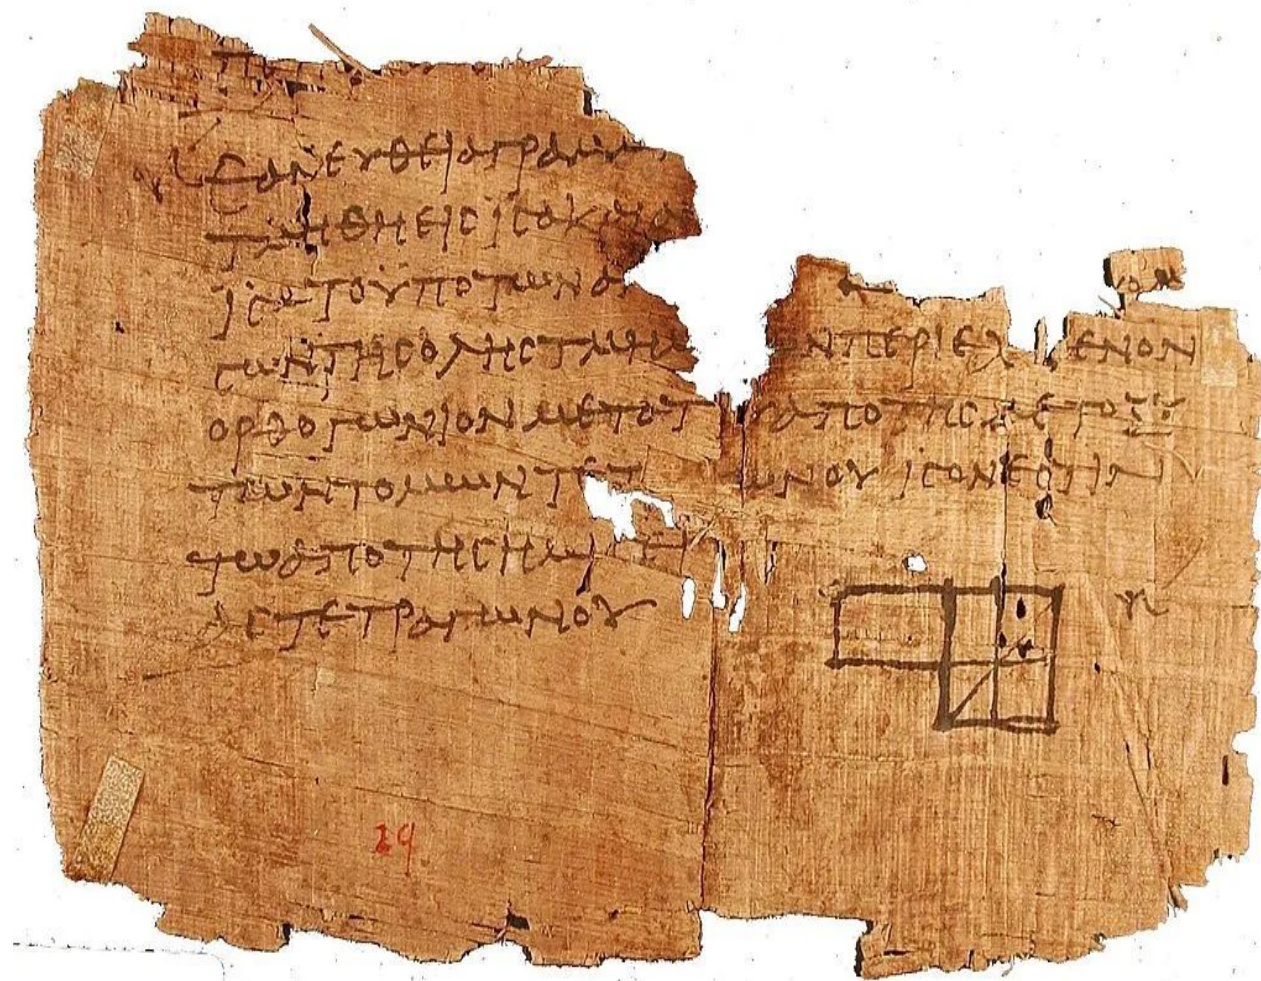 ϹΑΝΕΥΘΕΙΑΓΡΑΜΜ
ΤΜΗΘΗΕΙϹΙϹΑΚΑΙΑΝ
ΙϹΑΤΟΥΠΟΤΩΝΑ
ϹΩΝΤΗϹΟΛΗϹΤΜΗΜ ΩΝΠΕΡΙΕΧ ΜΕΝΟΝ
ΟΡΘΟΓΩΝΙΟΝΜΕΤΑΤΟΥΑΠΟΤΗϹΜΕΤΟΞΥ
ΤΩΝΤΟΜΩΝΤΕΤ ΩΝΟΥΙϹΟΝΕϹΤΙΝ
ΤΩΑΠΟΤΗϹΗΜΙϹΕΙ
ΑϹΤΕΤΡΑΓΩΝΟΥ
29